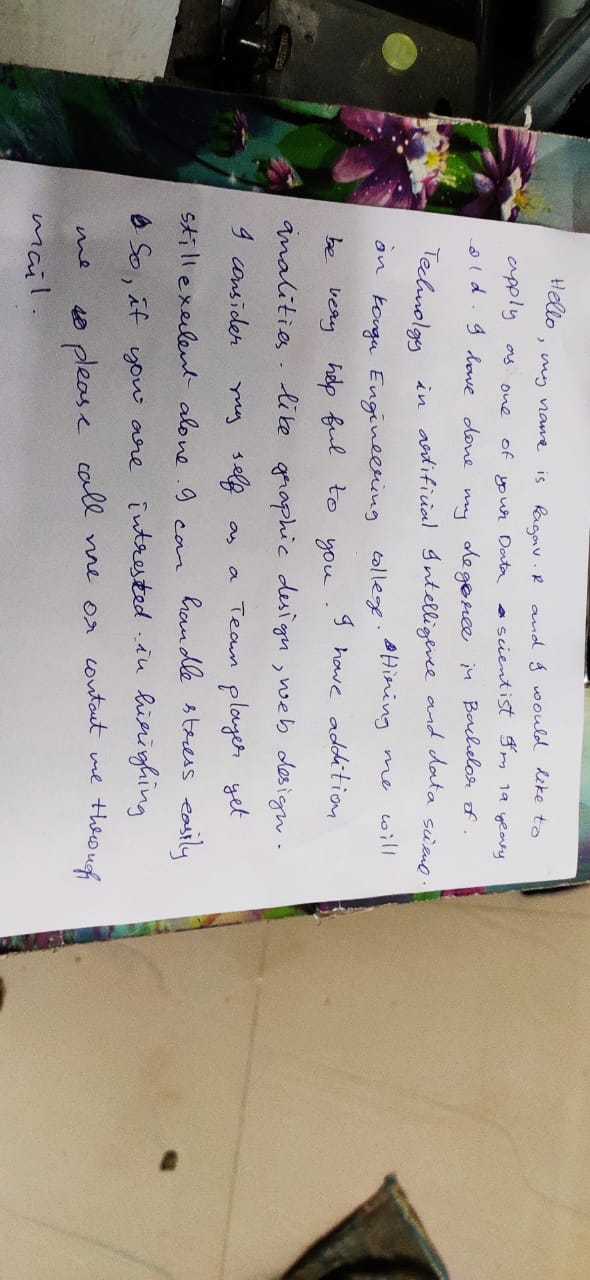 Hello, my name is Ragav.R and I would like to
apply as one of your Data scientist I'm 19 years
old. I have done my degree in Bachelor of.
Technolgy in artificial Intelligence and data scienc.
in Kongu Engineering college. Hiring me will
be very help ful to you. I have addition
qnalities. like graphic design, web design.
I consider my self as a Team player yet
still exelent alone. I can handle stress easily
So, if you are intrested in hirighing
me please call me or contact me through
mail.